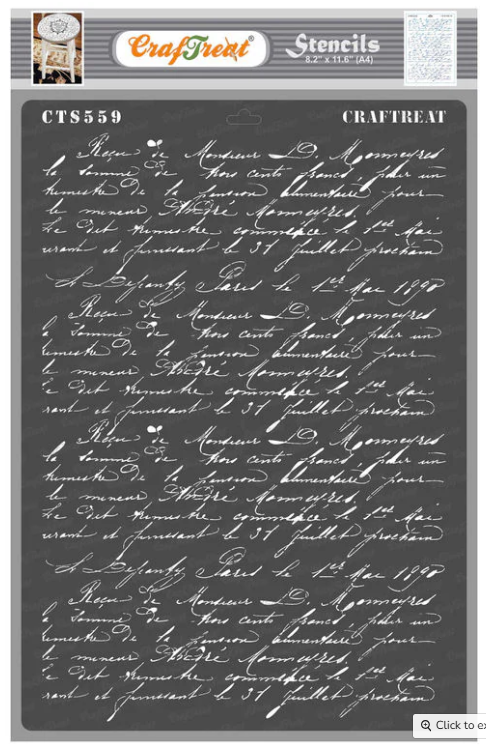 CrafTreat®
Stencils
8.2" x 11.6" (A4)
CTS559
CRAFTREAT
Reçu de Monsieur D. Monmeyres
la somme de trois cents francs, pour un
trimestre de la pension alimentaire pour
le mineur André Monmeyres.
Le dit trimestre commence le 1er Mai
urant et finissant le 31 juillet prochain
Paris le 1er Mai 1890
Reçu de Monsieur D. Monmeyres
la somme de trois cents francs, pour un
trimestre de la pension alimentaire pour
le mineur André Monmeyres.
Le dit trimestre commence le 1er Mai
rant et finissant le 31 juillet prochain
Reçu de Monsieur D. Monmeyres
la somme de trois cents francs, pour un
trimestre de la pension alimentaire pour
le mineur André Monmeyres.
Le dit trimestre commence le 1er Mai
urant et finissant le 31 juillet prochain
Paris le 1er Mai 1890
Reçu de Monsieur D. Monmeyres
la somme de trois cents francs, pour un
trimestre de la pension alimentaire pour
le mineur André Monmeyres.
Le dit trimestre commence le 1er Mai
rant et finissant le 31 juillet prochain
Click to ex